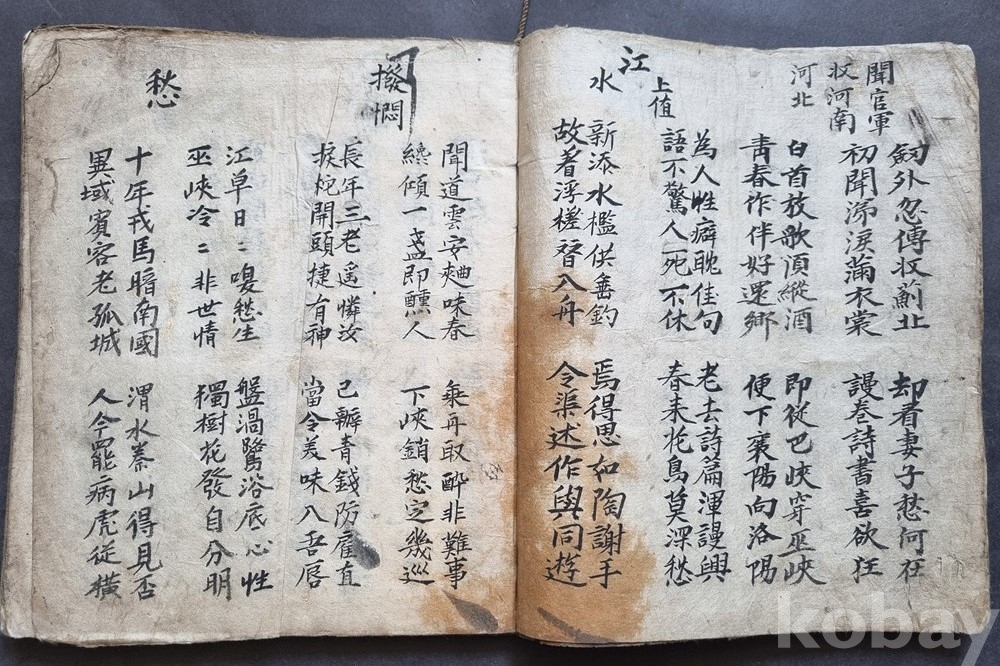 聞官軍
収河南
河北
劒外忽傳収薊北
初聞涕淚滿衣裳
却看妻子愁何在
謾卷詩書喜欲狂
白首放歌湏縱酒
青春作伴好還鄉
即從巴峽穿巫峽
便下襄陽向洛陽
江
上值
水
為人性癖耽佳句
語不驚人死不休
老去詩篇渾謾興
春来花鳥莫深愁
新添水檻供垂釣
故著浮槎替入舟
焉得思如陶謝手
令渠述作與同遊
撥悶
聞道雲安麯味春
纔傾一盞即醺人
乘舟取醉非難事
下峽銷愁定幾巡
長年三老遥憐汝
捩柁開頭捷有神
已辦青錢防雇直
當令美味入吾唇
愁
江草日〻喚愁生
巫峽冷〻非世情
盤渦鷺浴底心性
獨樹花發自分明
十年戎馬暗南國
異域賓客老孤城
渭水秦山得見否
人今罷病虎從橫
kobay